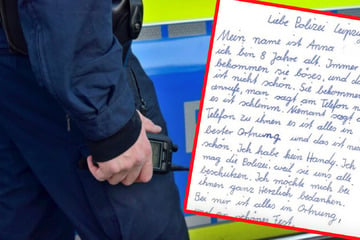 Liebe Polizei Leipzig
Mein name ist Anna
ich bin 8 Jahre alt. Immer
bekommen sie böses, und
ist nicht schön. Sie bekommen
anrufe, man sagt am Telefon
es ist schlimm. Niemant sagt
Telefon zu ihnen es ist alles in
bester Ortnung und das ist
schön. Ich habe kein Handy. Ich
mag die Polizei, weil sie uns alle
beschützen. Ich möchte mich bei
ihnen ganz Herzlich bedanken.
Bei mir ist alles in Ortnung,
schönes Fest